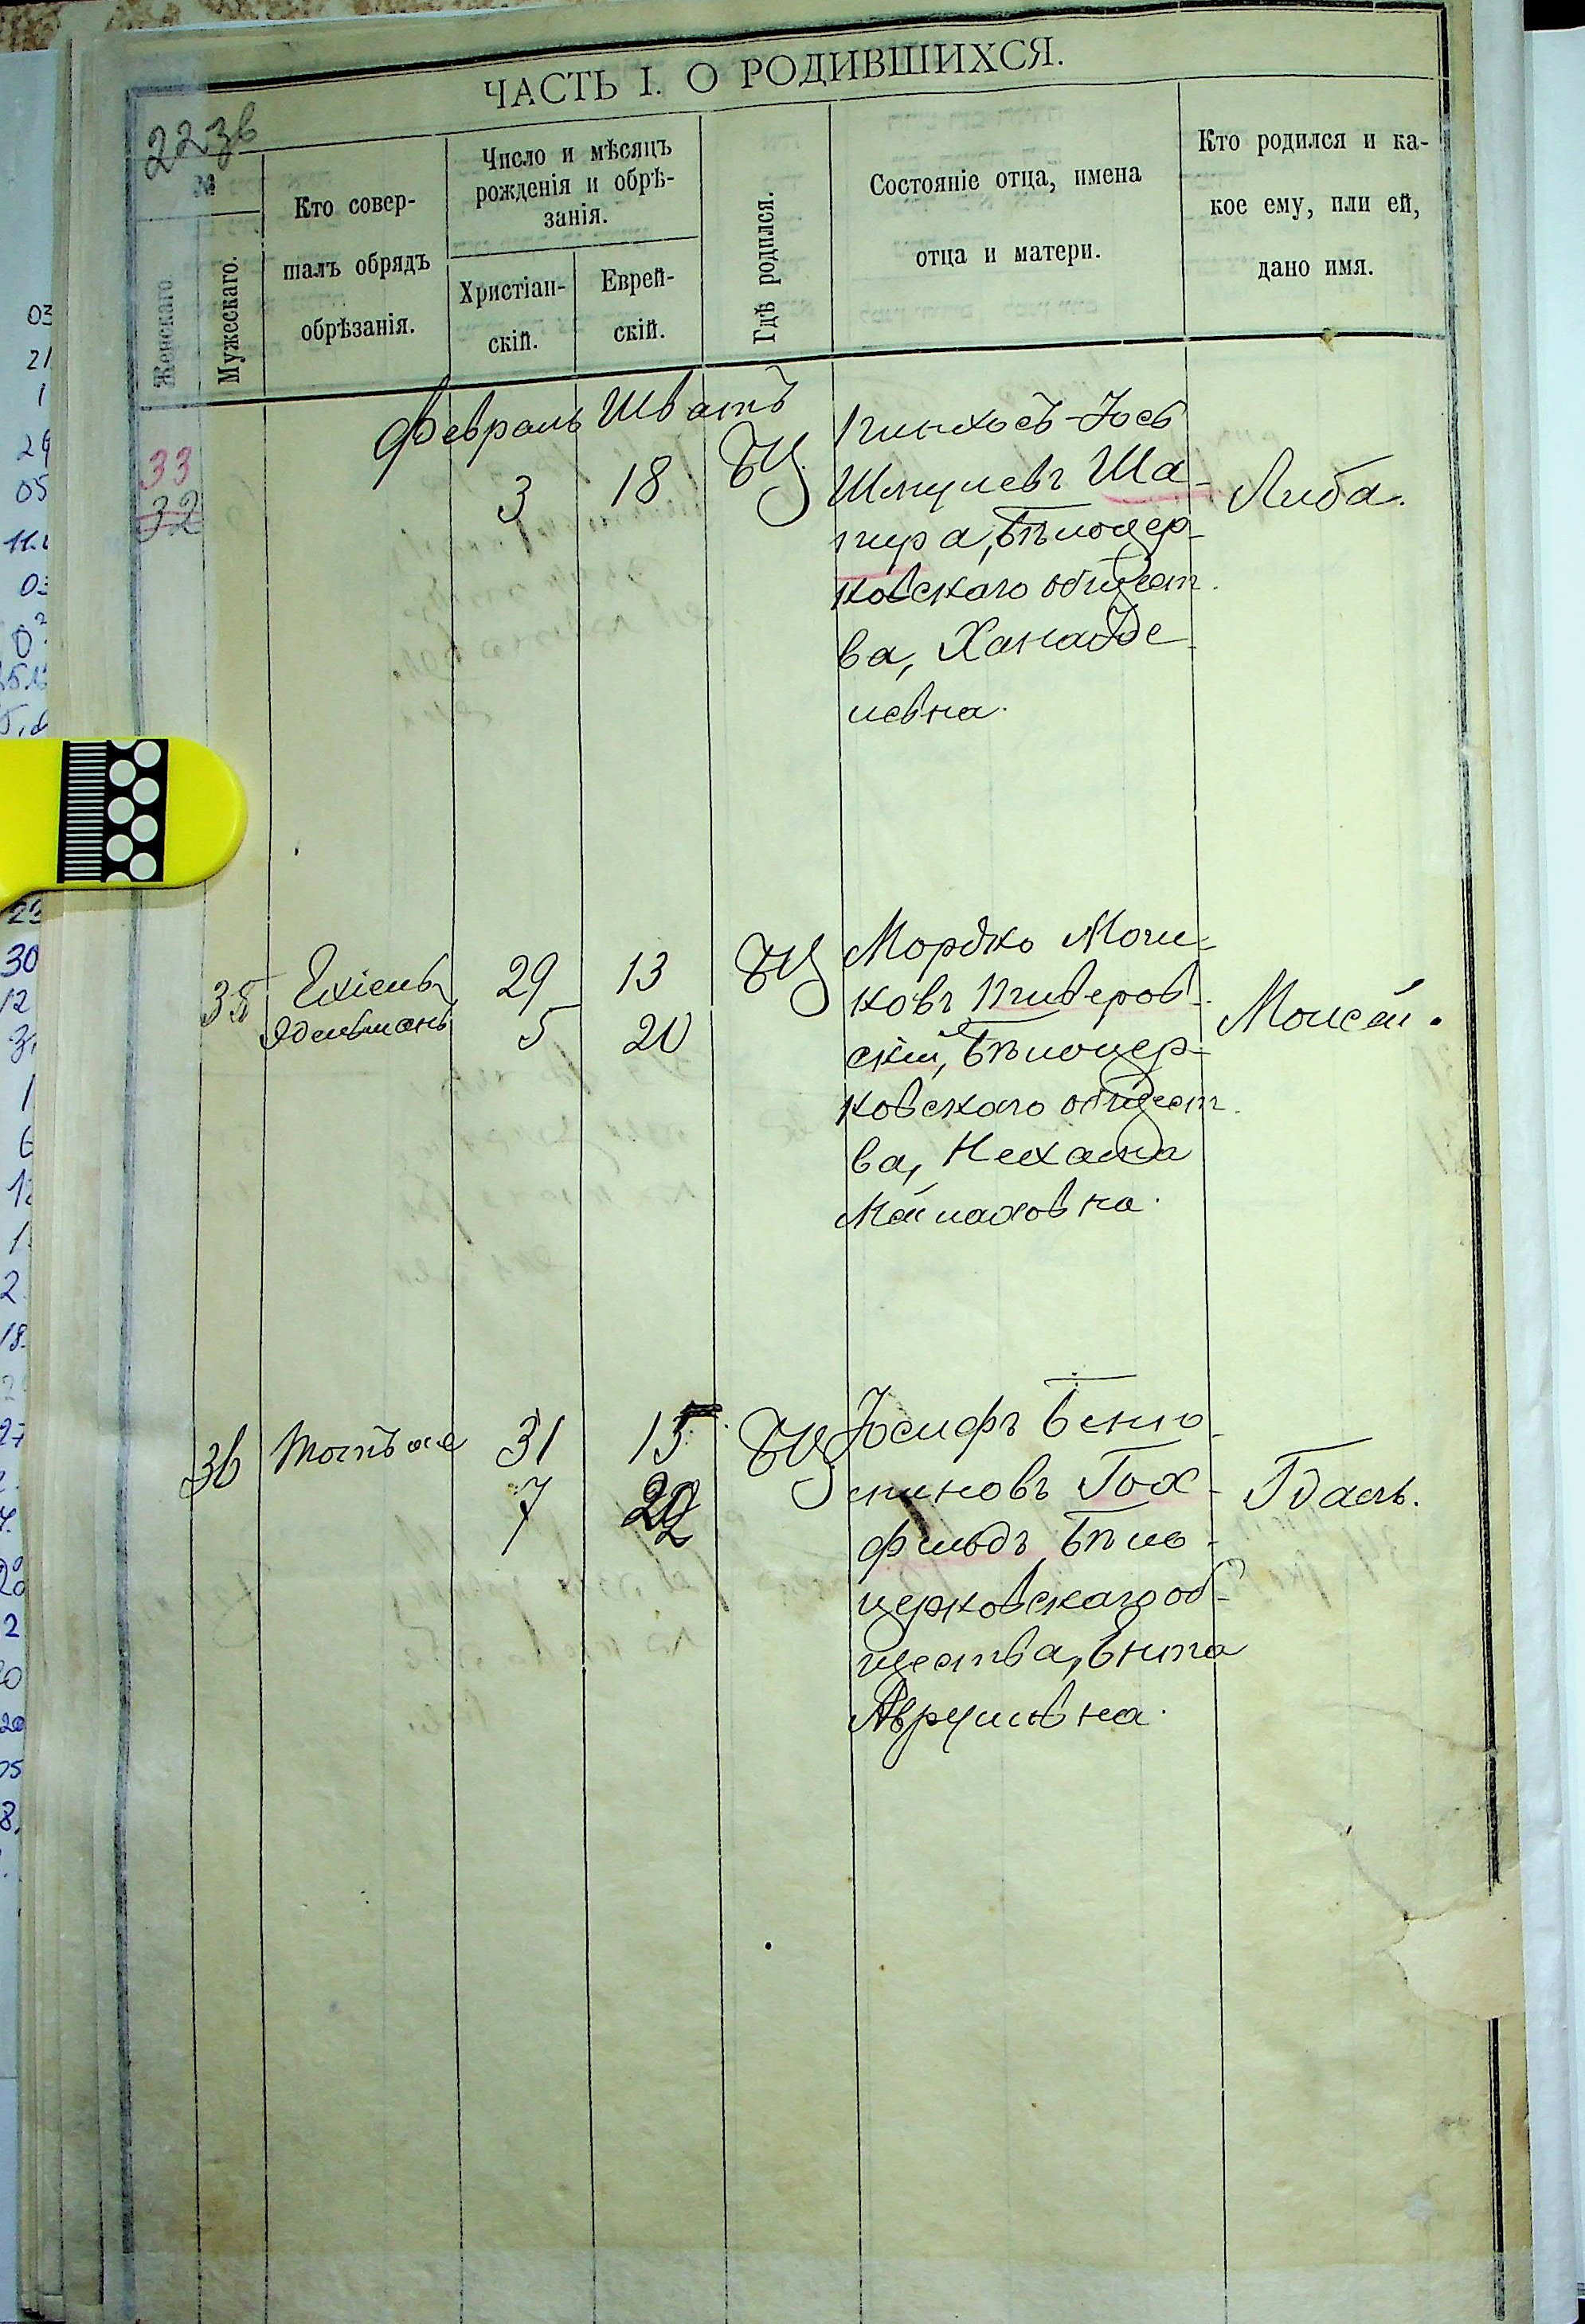 ЧАСТЬ I. О РОДИВШИХСЯ.
223в
№
Женскаго
Мужескаго.
Кто совер-
шалъ обрядъ
обрѣзанія.
Число и мѣсяцъ
рожденія и обрѣ-
занія.
Христіан-
скій.
Еврей-
скій.
Гдѣ родился.
Состояніе отца, имена
отца и матери.
Кто родился и ка-
кое ему, или ей,
дано имя.
Февраль Шватъ
33
32
3
18
БЦ
Пинхосъ-Іось
Шмулевъ Ша-
пира, Бѣлоцер-
ковскаго общест-
ва, Хана Іде-
левна.
Либа.
35
Ехіель
Эдельманъ
29
5
13
20
БЦ
Мордко Мош-
ковъ Пиверов-
скій, Бѣлоцер-
ковскаго общест-
ва, Нехама
Моисей.
36
31
7
15
22
БЦ
Іосифъ Беніа-
миновъ Гох-
фельдъ Бѣло-
церковскаго об-
щества, Ента
Аврумовна.
Гдаль.